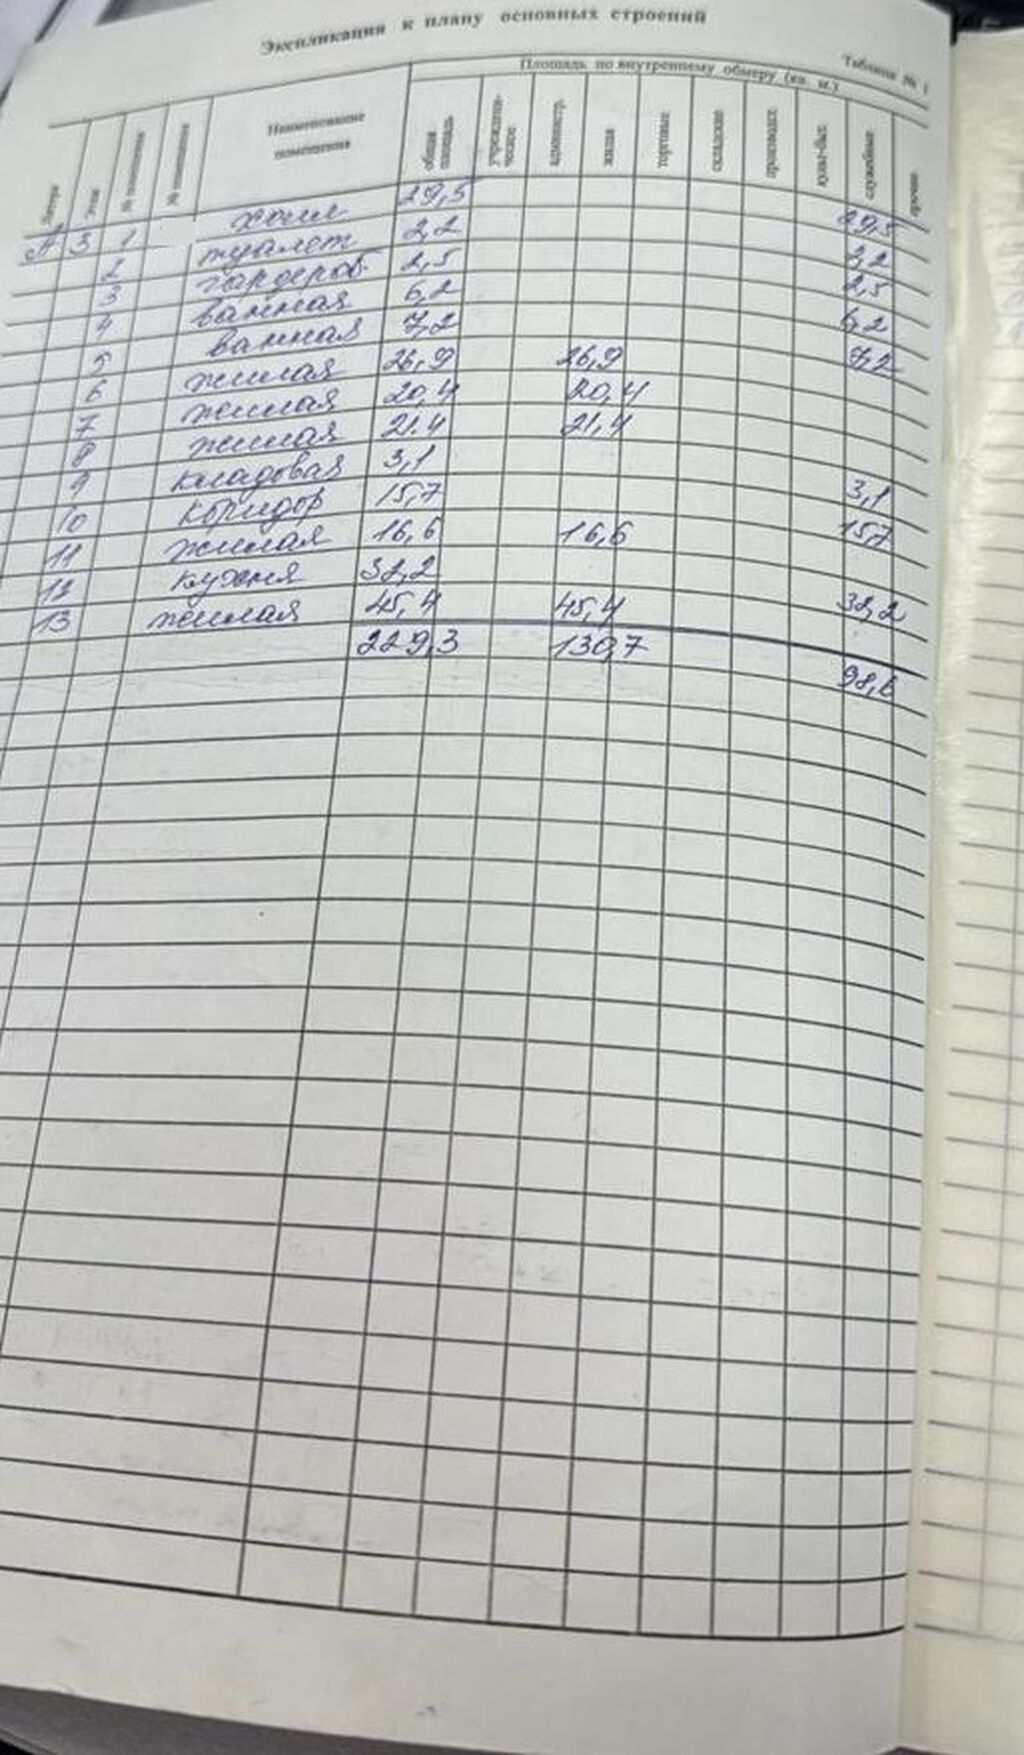 Экспликация к плану основных строений
Таблица № 1
Площадь по внутреннему обмеру (кв. м.)
Литера Этаж № помещения № помещения Наименование помещения общая площадь учрежденческое администр. жилая торговые складские производст. культ-быт. служебные прочие
А 3 1 холл 29,5 29,5
2 туалет 2,2 2,2
3 гардероб 2,5 2,5
4 ванная 6,2 6,2
5 ванная 7,2 7,2
6 жилая 26,9 26,9
7 жилая 20,4 20,4
8 жилая 21.4 21,4
9 кладовая 3,1 3,1
10 коридор 15,7 15,7
11 жилая 16,6 16,6
12 кухня 32,2 32,2
13 жилая 45,4 45,4
229,3 130,7 98,6